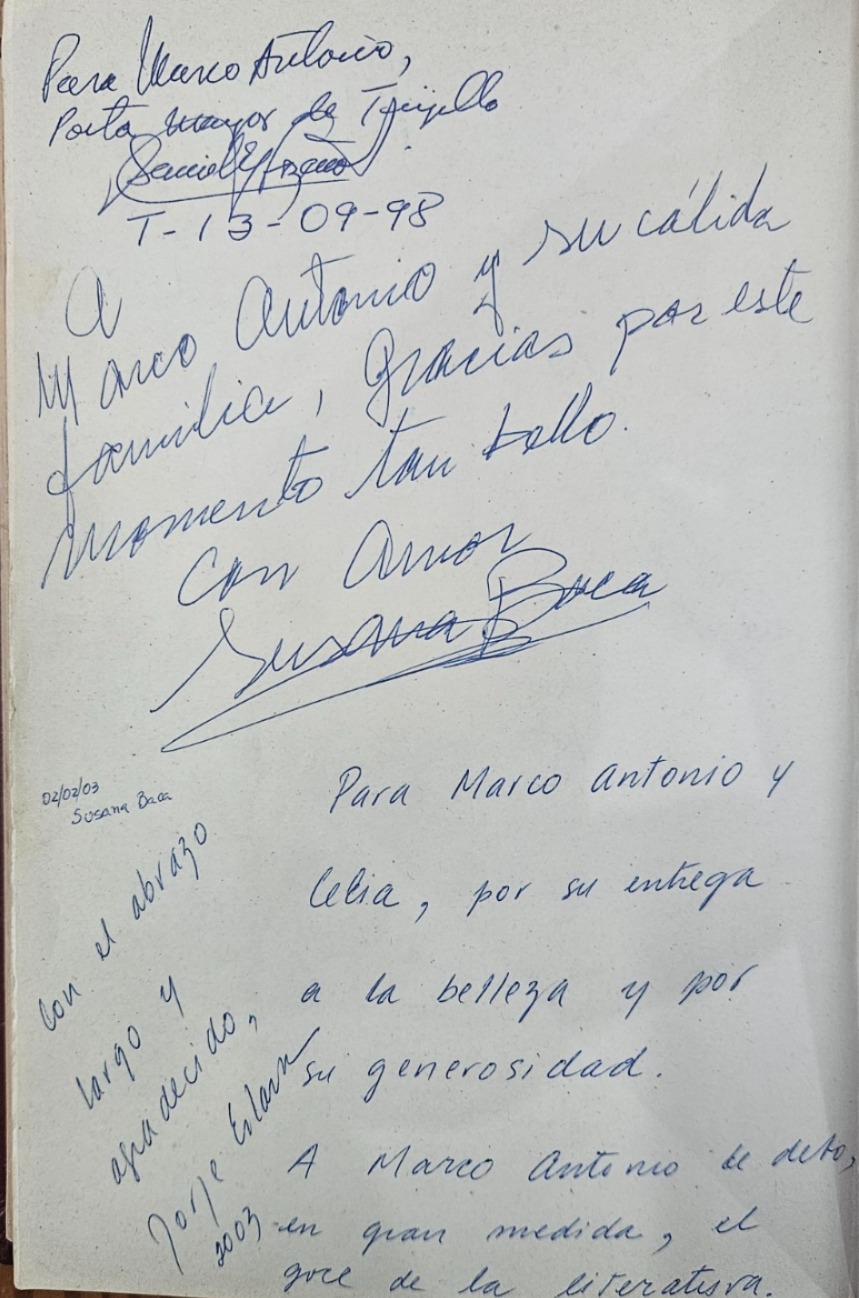 Para Marco Antonio,
Poeta mayor de Trujillo
T-13-09-98
A
Marco Antonio y su cálida
familia, gracias por este
momento tan bello.
Con Amor
Susana Baca
02/02/03
Susana Baca
Para Marco Antonio y
Celia, por su entrega
a la belleza y por
su generosidad.
A Marco Antonio le debo,
en gran medida, el
goce de la literatura.
Con el abrazo
largo y
agradecido,
Jorge Eslava
2003